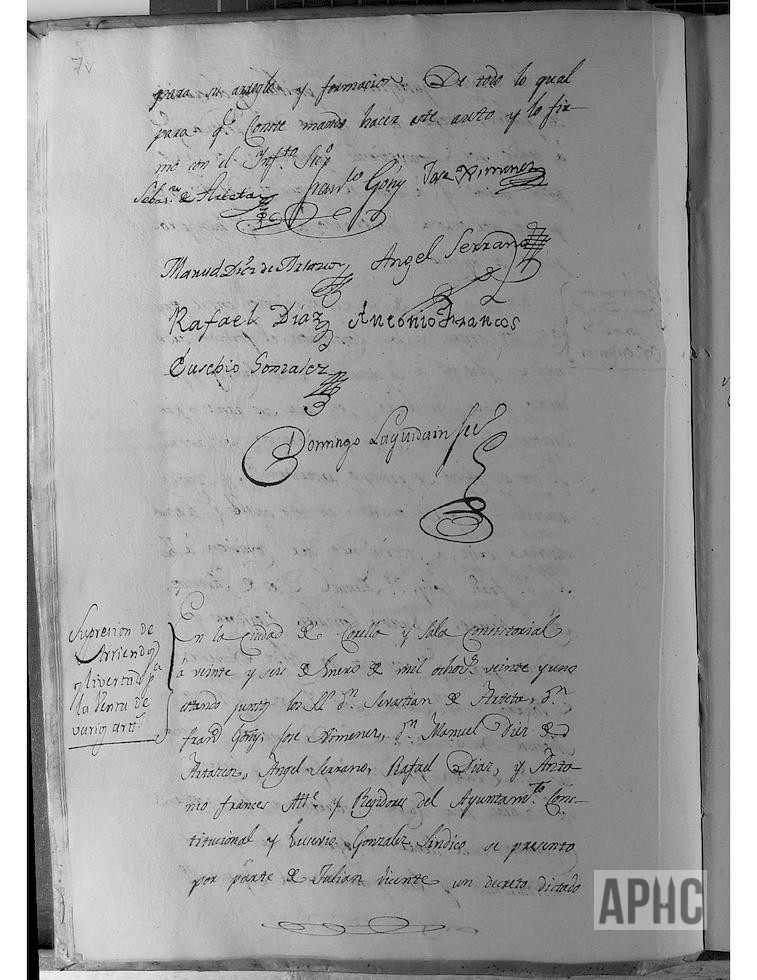 7v
para su arreglo y formacion. De todo lo qual
para q.e Conste mando hacer este aucto y lo fir-
mó con el Ynf.to Srio
Sebas.n de Arteta Fran.co Goñy Jose Ximenez
Manuel Diez de Artazcoz Angel Serrano
Rafael Diaz Antonio Frances
Eusebio Gonzalez
Domingo Laquidain
Supresion de
Arriendos
y livertad p.a
la Venta de
varios art.s
En la Ciudad de Corella y Sala Consistorial
á veinte y seis de Enero de mil ochoc.s veinte y uno
estando juntos los SS. d.n Sevastian de Arteta, d.n
Fran.co Goñy, Jose Ximenez, d.n Manuel Diez de
Artazcoz, Angel Serrano, Rafael Diaz, y Anto-
nio frances Alt.e y Regidores del Ayuntam.to Cons-
titucional y Eusevio Gonzalez Sindico se presento
por parte de Julian Vicente un decreto dictado
APHC